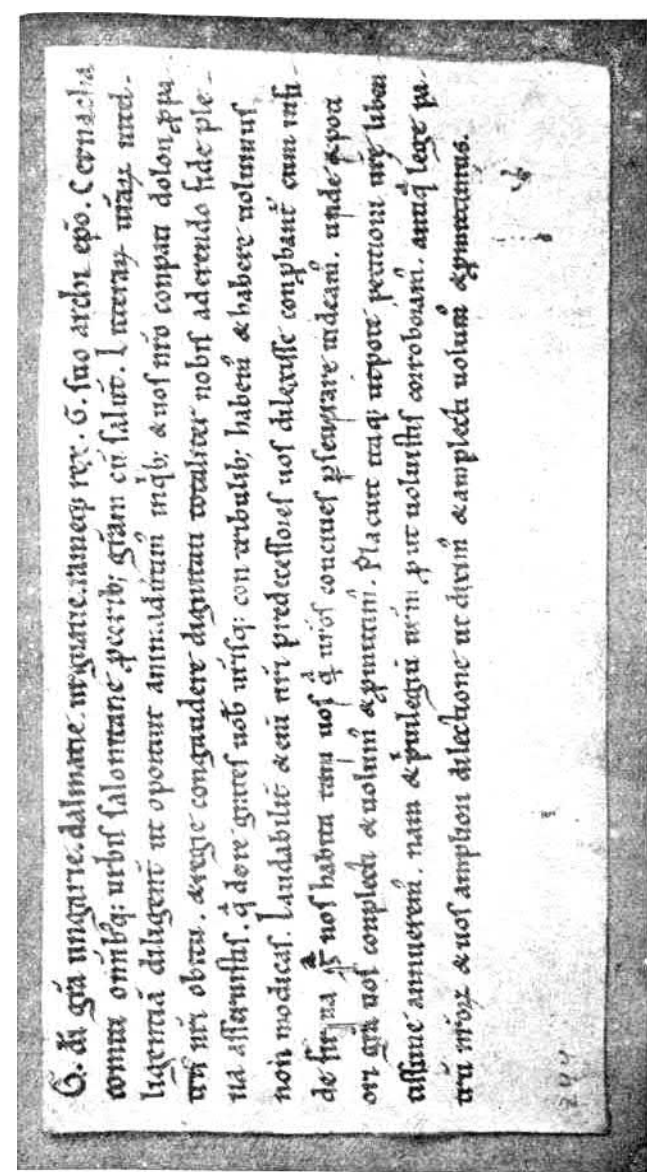 G. di gr̄a ungarie. dalmatie. urguatie. rameq; rex. G. suo archi ep̄o. Cernacha
comiti om̄ib; q: urbis salonitane ꝓcerib; gr̄am cū salut̄. Litteraꝝ ur̄aꝝ intel-
ligentiā diligent̄ ut oportuit animadu̇tim̄ inq̇b; & uos nr̄o conpati dolori ꝓ pa
tris nr̄i obitu. & regie congaudere dignitati totaliter nobis aderendo fide ple-
na asseruistis. qd̄ dore grates uob̄ utisq: con tribulib; habem̄ & habere uolumus
non modicas. Laudabilit̄ & eni nr̄i predecessores uos dilexisse conꝓbant̄ cum insi-
de firma nos habita uos qd̄ ur̄os conciues ꝑseuerare uideam̄. unde & poti
ori gr̄a uos conplecti & uolum̄ & ꝓmittim̄. Placuit itaq; utpote petitioni ur̄e liben
tissime annuerem̄. nam & puilegiū ur̄m ꝓut uoluistis corroboram̄. antiq̄ lege pa-
trū ur̄oꝝ & uos ampliori dilectione ut dixim̄ & amplecti uolum̄ & ꝓmittimus.